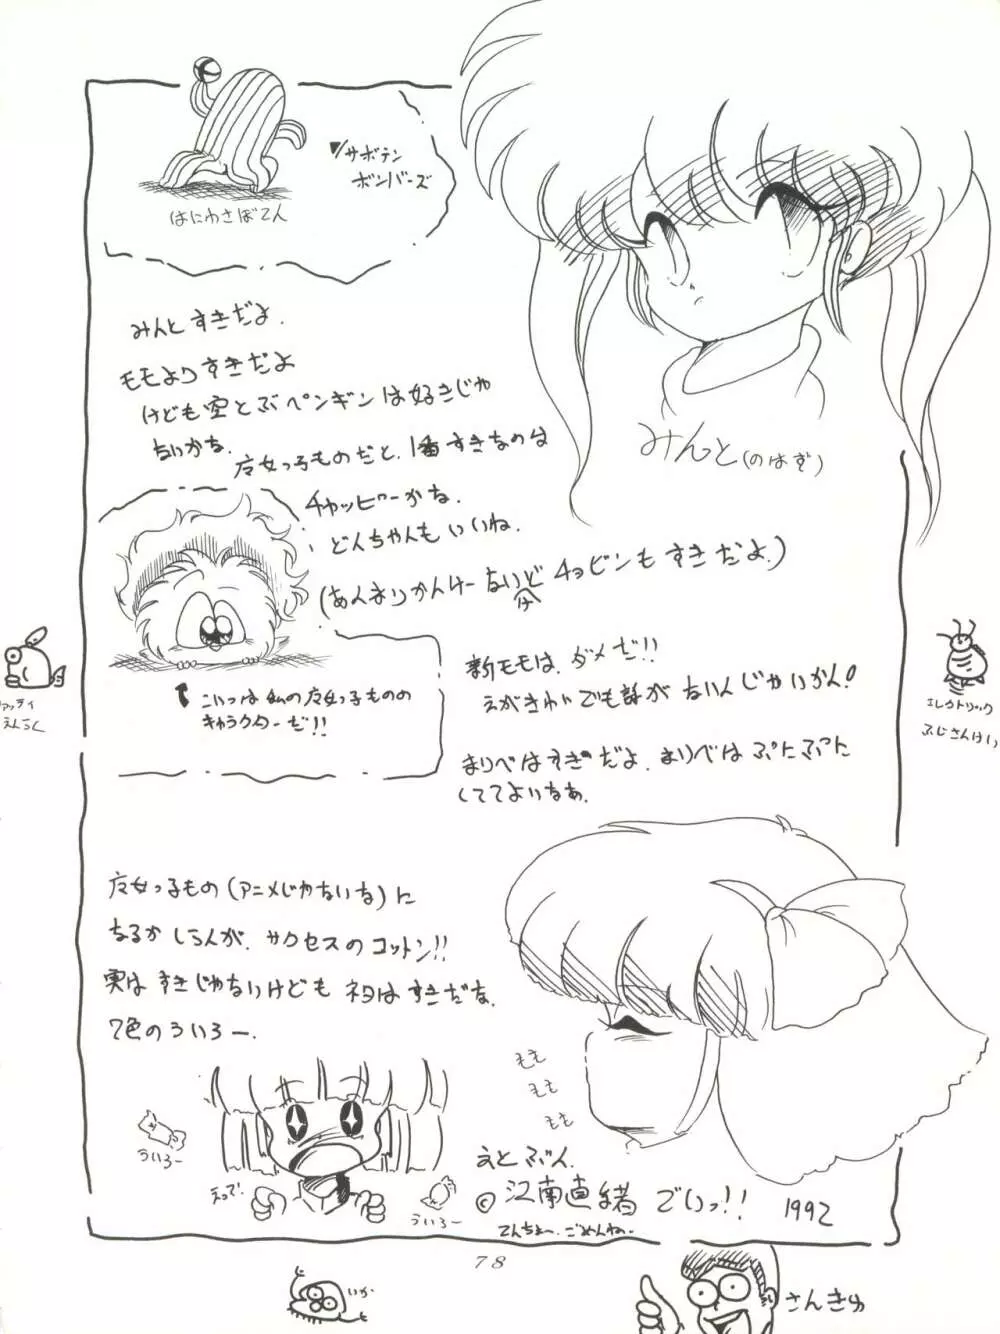 サボテン
ボンバーズ
はにわさぼてん
みんとすきだよ.
モモよりすきだよ
けども空とぶペンギンは好きじゃ
ないかな.
みんと(のはず)
魔女っ子ものだと、1番すきなのは
チャッピーかな.
どんちゃんもいいね.
(あんまりかんけーないけど チョビンもすきだよ.)
こいつは私の魔女っ子ものの
キャラクターだ!!
新モモは、ダメだ!!
えがきれいでも話がないんじゃいかん!
まりべはすきだよ. まりべは ぷにぷに
しててよいなぁ.
えんらく
エレクトリック
ふじさんけい
魔女っ子もの(アニメじゃないな)に
なるかしらんが、サクセスのコットン!!
実はすきじゃないけどもネタはすきだな.
7色のういろー.
もも
もも
もも
ういろー
えって.
ういろー
えとぶん.
©江南直緒でいっ!! 1992
てんちょー、ごめんね..
78
いか
さんきゅ